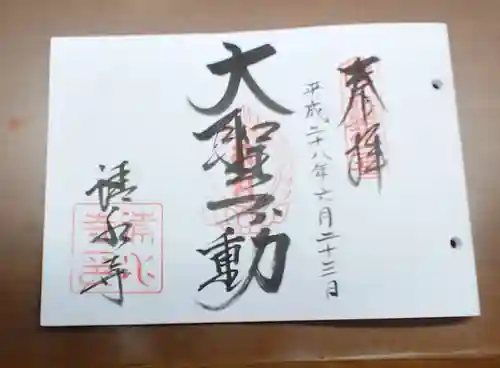 奉拝
平成二十八年六月二十三日
大聖不動
清水寺